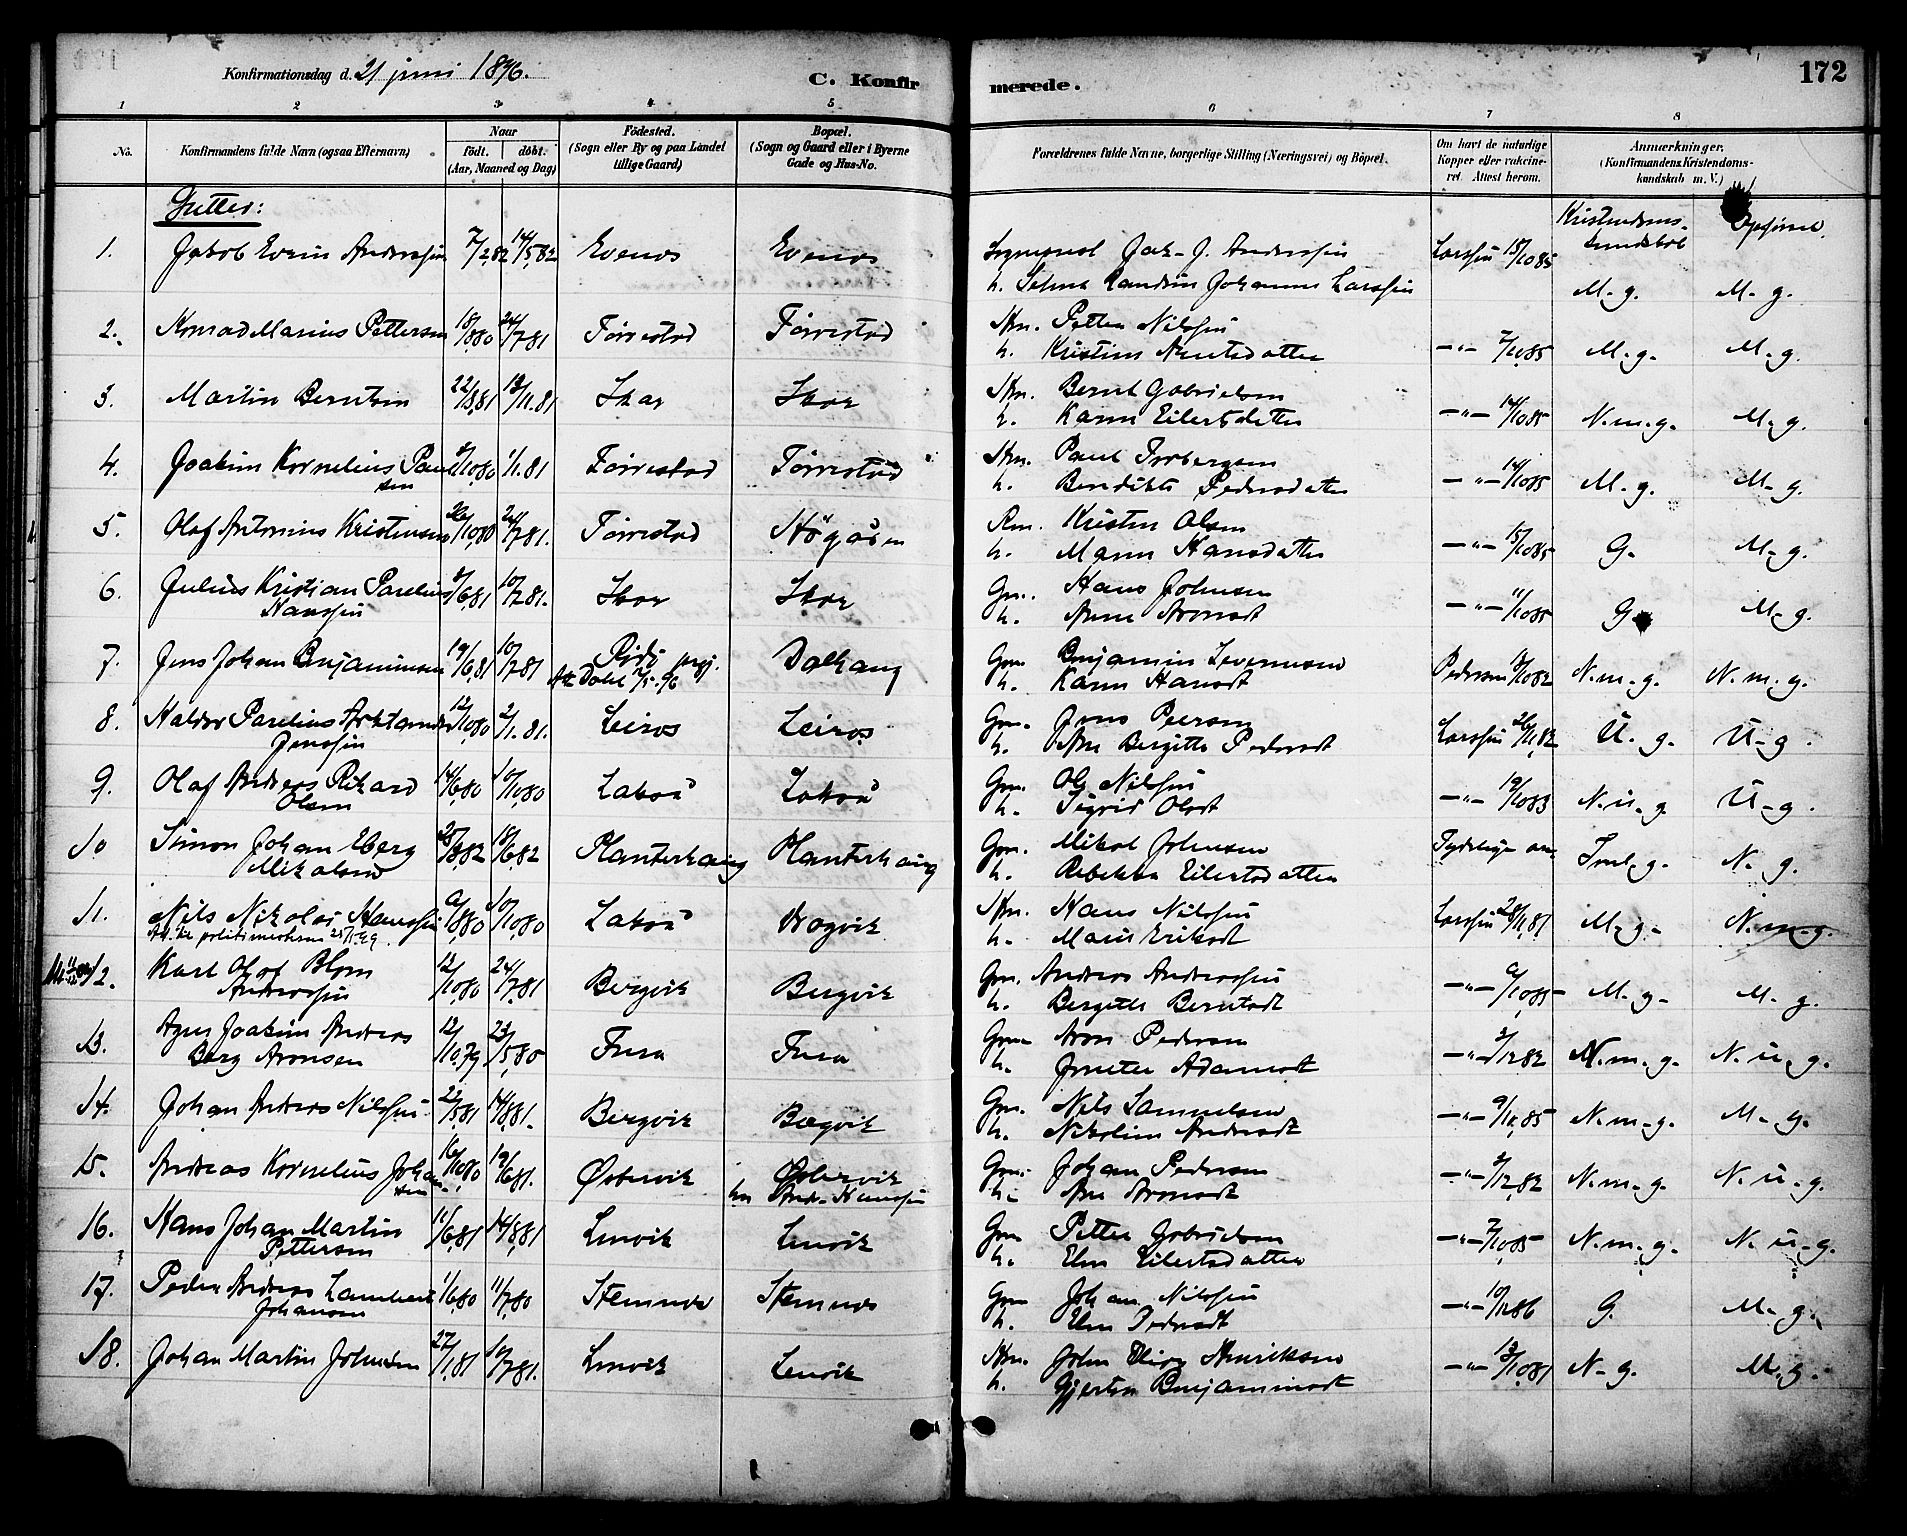 Konfirmationsdag d. 21 juni 1896.
C. Konfirmerede.
172
1 2 3 4 5 6 7 8
No.
Konfirmandens fulde Navn (ogsaa Efternavn)
Naar
födt. döbt.
(Aar, Maaned og Dag)
Födested.
(Sogn eller By og paa Landet
tillige Gaard)
Bopæl.
(Sogn og Gaard eller i Byerne
Gade og Hus-No.
Forældrenes fulde Navne, borgerlige Stilling (Næringsvei) og Böpæl.
Om havt de naturlige
Kopper eller vakcine-
ret. Attest herom.
Anmærkninger.
(Konfirmandens Kristendoms-
kundskab m. V.)
Gutter:
Kristendoms-
kundskab
Opførsel.
1. Jakob Evein Anderssen 7/2 82 14/5 82 Evenes Evenes
Sogneprest Jak. J. Anderssen Larssen 15/10 85
h. Selma Johanne Larssen M. g. M. g.
2. Konrad Marius Pettersen 18/8 80 24/7 81 Tørrestad Tørrestad
Petter Nilssen
h. Kristine Knutsdatter -"- 7/10 85 M. g. M. g.
3. Martin Berntsen 22/8 81 13/11 81 Skar Skar
Bernt Gabrielsen
h. Karen Eilertsdatter -"- 14/10 85 N. m. g. M. g.
4. Joakim Kornelius Paulsen /10 80 1/1 81 Tørrestad Tørrestad
Paul Torbergsen
h. Benedikte Pedersdatter -"- 14/10 85 M. g. M. g.
5. Olaf Antonius Kristensen /10 80 24/7 81. Tørrestad Høgåsen
Kristen Olsen
h. Maren Hansdatter -"- 15/10 85 G. M. g.
6. Julius Kristian Parelius 8/6 81 10/7 81. Skar Skar
Hanssen
Gm. Hans Johnsen
h. Anne Aronsdt -"- 11/10 85 G. M. g.
7. Jens Johan Benjaminsen 19/6 81 10/7 81 Dalhaug
Gm. Benjamin
h. Karen Hansdt Pedersen 18/10 82 N. m. g. N. m. g.
8. Haldor Parelius 12/10 80 2/1 81. Leiros Leiros
Jenssen
Gm. Jens Peersen
h. Ane Bergitte Pedersdt Larssen 26/11 82 U. g. U. g.
9. Olaf Anders Rikard 14/6 80 10/10 80 Lakså Lakså
Olsen
Gm. Ole Nilssen
h. Sigrid Olsdt -"- 19/10 83 N. u. g. U. g.
10 Simon Johan Eberg 25/3 82 18/6 82 Planterhaug Planterhaug
Mikalsen
Gm. Mikal Johnsen Tydelige
h. Rebekka Eilertsdatter Tvl. g. N. g.
11. Nils Nikolai Hanssen 9/8 80 10/10 80 Lakså Dragvik
Att. til politimesteren 25/1 99
Hans Nilssen
h. Marie Eriksdt Larssen 28/11 81 M. g. N. m. g.
12. Karl Olaf Blom 12/10 80 24/7 81 Bergvik Bergvik
Anderssen
Gm. Anders Anderssen
h. Bergitte Berntsdt -"- 9/10 85 M. g. M. g.
13. Joakim Anders 12/10 79 23/5 80 Fura Fura
Berg Aronsen
Gm. Aron Pedersen
h. Jenette Adamsdt -"- 3/12 82 N. m. g. N. u. g.
14. Johan Anders Nilssen 22/5 81 14/8 81. Bergvik Bergvik
Gm. Nils Samuelsen
h. Nikoline Andersdt -"- 9/10 85 N. m. g. M. g.
15. Andreas Kornelius Johansen 16/10 80 19/6 81. Østervik Østervik
hos And. Hanssen
Gm. Johan Pedersen
h. Ane Aronsdt -"- 3/12 82 N. m. g. N. u. g.
16. Hans Johan Martin 11/6 81 14/8 81 Lenvik Lenvik
Pettersen
Gm. Petter Gabrielsen
h. Elen Eilertsdatter -"- 7/10 85 N. m. g. N. u. g.
17. Peder Andreas Lambert 1/6 80 11/7 80 Stemnes Stemnes
Johansen
Gm. Johan Nilssen
h. Elen Pedersdt -"- 10/ 86 G. M. g.
18. Johan Martin Johnsen 27/1 81 10/7 81. Lenvik Lenvik
John Elias Henriksen
h. Gjertru Benjaminsdt -"- 13/10 81 N. g. M. g.